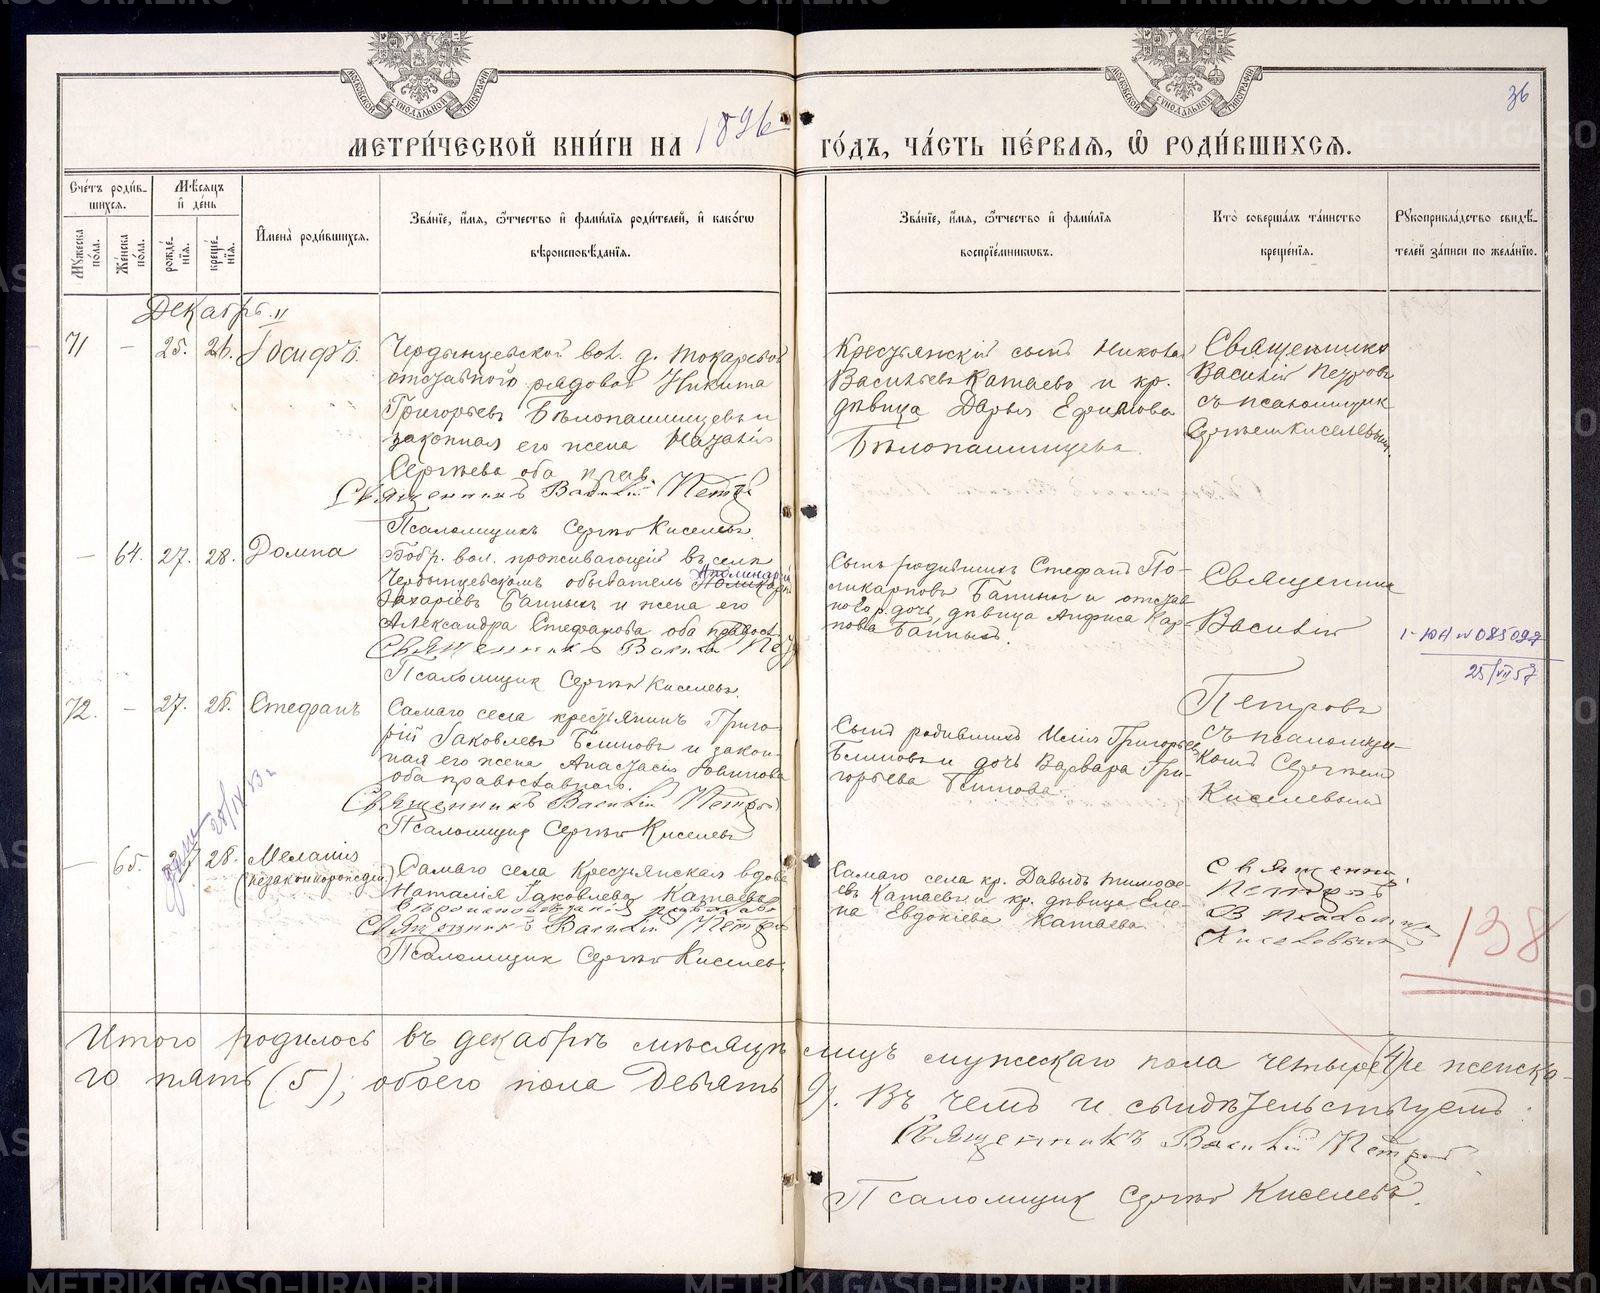 METRIKI.GASO-URAL.RU
36
МЕТРИ́ЧЕСКОЙ КНИ́ГИ НА 1896 ГО́ДЪ, ЧА́СТЬ ПЕ́РВАЯ, Ѡ РОДИ́ВШИХСЯ.
Сче́тъ роди́в-
шихся.
Мѣ́сяцъ
и҆ де́нь
Мꙋ́жеска по́ла.
Же́нска по́ла.
рожде́-
нїя.
креще́-
нїя.
И҆мена̀ роди́вшихся.
Зва́нїе, и҆́мя, ѻ҆́тчество и҆ фами́лїя роди́телей, и҆ како́гѡ
вѣроисповѣ́данїя.
Зва́нїе, и҆́мя, ѻ҆́тчество и҆ фами́лїя
воспрїе́мникѡвъ.
Кто̀ соверша́лъ та́инство
креще́нїя.
Рꙋкоприкла́дство свидѣ́-
телей за́писи по жела́нїю.
Декабрь
71 – 25. 26. Іосифъ.
Чердынцевской вол. д. Токаревой
отставного рядовой Никита
Григорьевъ Бѣлопашинцевъ и
законная его жена
Сергѣева оба прав.
Священникъ Василій Петровъ
Псаломщикъ Сергѣй Киселевъ.
Крестьянскій сынъ
Васильевъ Катаевъ и кр.
дѣвица Дарья Ефимова
Бѣлопашинцева.
Священникъ
Василій Петровъ
съ псаломщик
Сергѣемъ Киселевымъ.
– 64. 27. 28. Домна
вол. проживающій въ селѣ
обыватель
Захаріевъ Банныхъ и жена его
Александра Стефанова оба правосл
Священникъ Василій
Псаломщик Сергѣй Киселевъ.
Сынъ родившихъ Стефанъ По-
ликарповъ Банныхъ и отстав
ного р. дочь, дѣвица Анфиса Кар-
пова Банныхъ.
Священник
Василій
Петровъ
съ псаломщи-
комъ Сергѣемъ
Киселевымъ
25/VII 57
72. – 27. 28. Стефанъ
Самаго села крестьянинъ Григо-
рій Іаковлевъ Блиновъ и закон-
ная его жена Анастасія
оба православнаго.
Священникъ Василій Петровъ
Псаломщик Сергѣй Киселевъ
Сынъ родившихъ Илія Григорьев
Блиновъ и дочь Варвара Гри-
горьева Блинова.
– 65. 28. Меланія
(незаконнорожден)
Самаго села Крестьянская вдова
Наталія Іаковлева Катаева
вѣроисповѣданія
Священникъ Василій Петров
Псаломщик Сергѣй Киселевъ
Самаго села кр. Давыдъ Тимоѳе-
евъ Катаевъ и кр. дѣвица Еле-
на Евдокіева Катаева.
Священник.
Петровъ
Киселевымъ
138
Итого родилось въ декабрѣ мѣсяцѣ лицъ мужескаго пола четыре (4) женска-
го пять (5), обоего пола девять 9). Въ чемъ и свидѣтельствуемъ.
Священникъ Василій Петровъ
Псаломщик Сергѣй Киселевъ.
METRIKI.GASO-URAL.RU